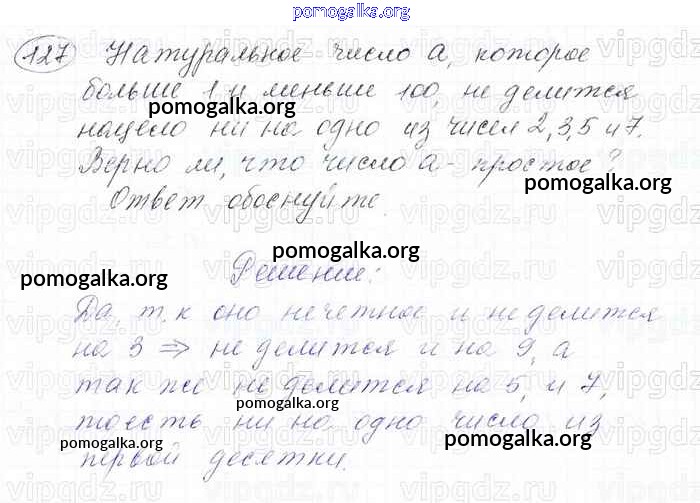 pomogalka.org
127 Натуральное число а, которое
больше 1 и меньше 100, не делится
pomogalka.org
нацело ни на одно из чисел 2, 3, 5 и 7.
Верно ли, что число а - простое?
pomogalka.org
Ответ обоснуйте.
pomogalka.org
Решение:
pomogalka.org
Да, т.к оно нечетное и не делится
на 3 ⇒ не делится и на 9, а
так же не делится на 5, и 7,
pomogalka.org
тоесть ни на одно число из
pomogalka.org
pomogalka.org
первой десятки.